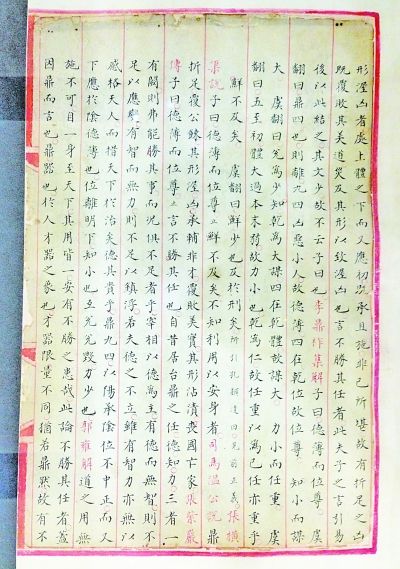 形渥凶者處上體之下而又應初既承且施非己所堪故有折足之凶
既覆敗其美道災及其形以致渥凶也言不勝其任者此夫子之言引易
後以此結之其文少故不云子曰也李鼎祚集解子曰德薄而位尊虞
翻曰鼎四也則離九四凶惡小人故德薄四在乾位故位尊 知小而謀
大 虞翻曰兌為少知乾為大謀四在乾體故謀大 力小而任重 虞
翻曰五至初體大過本末弱故力小也乾為仁故任重以為己任亦重乎
鮮不及矣 虞翻曰鮮少也及於刑矣所引孔頴達曰見前正義張橫
渠說子曰德薄而位尊至鮮不及矣不知利用以安身者司馬溫公說鼎
折足覆公餗其形渥凶承輔非才覆敗美實其形沾漬喪國亡家張紫巖
傳子曰德薄而位尊至言不勝其任也自昔居台鼎之任德知力三者一
有闕則弗能勝其事而況俱不足者乎宰相以德為主有德而無智則不
足以應變有智而無力則不足以鎮浮若夫德之不立雖有智力亦無以
感格天人而措天下於治矣德其貴乎鼎九四以陽承陰位不中正而又
下應於陰德薄也位離明下知小也互兌兌毀力少也郭雍解道之用無
施不可自一身至天下其用皆一安有不勝之患哉此論不勝其任者蓋
因鼎而言也鼎器也於人才器之象也才器限量不同猶若鼎然故有不